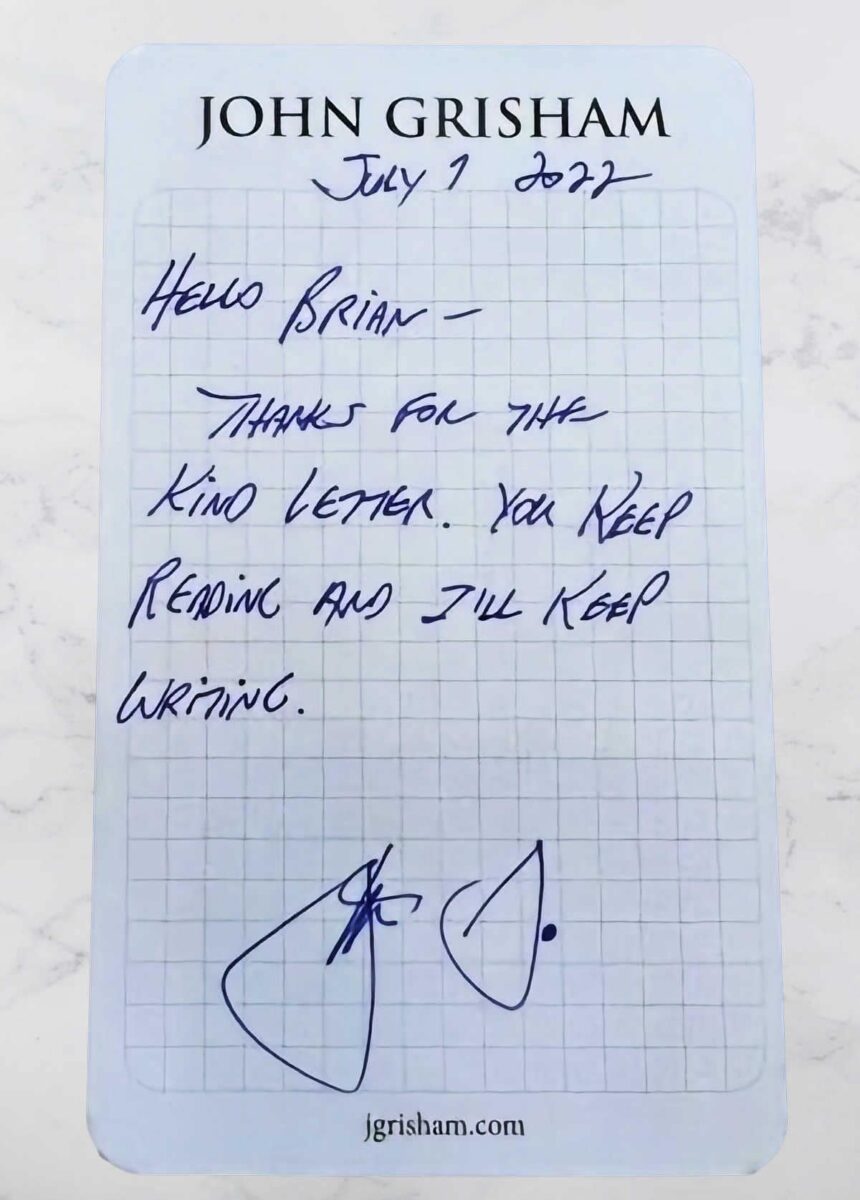 JOHN GRISHAM
JULY 7 2022
HELLO BRIAN —
THANKS FOR THE
KIND LETTER. YOU KEEP
READING AND I'LL KEEP
WRITING.
jgrisham.com